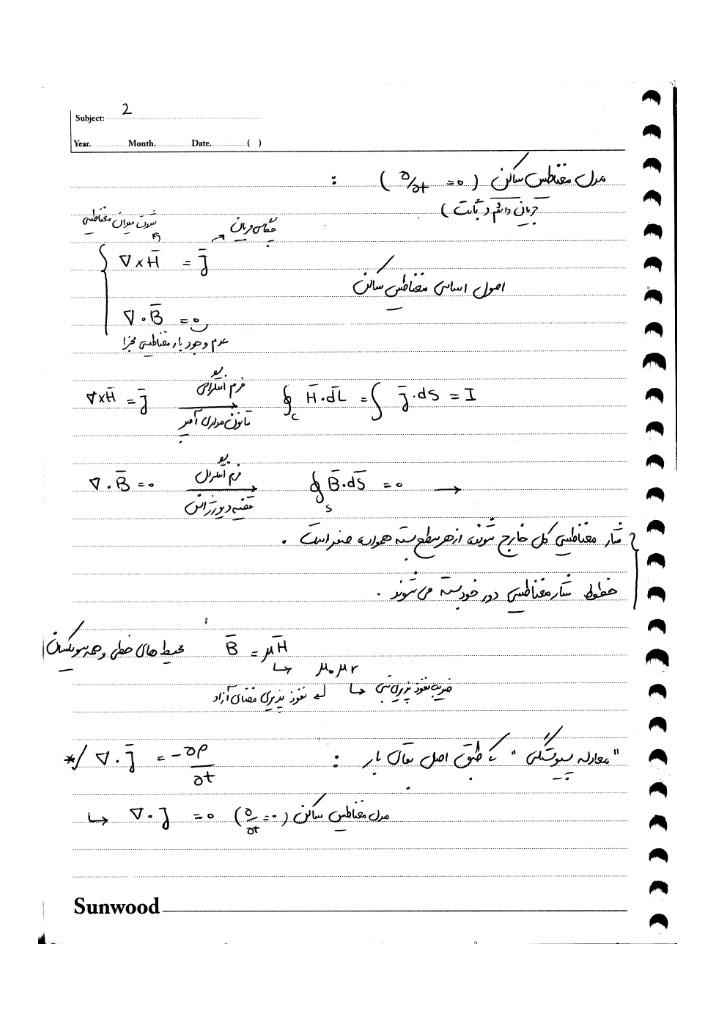 Subject: 2
Year. Month. Date. ( )
مدل مغناطیس ساکن ( ∂/∂t = 0 ) :
( جریان دائم و ثابت )
شدت میدان مغناطیسی چگالی جریان
∇×H̄ = J̄
اصول اساسی مغناطیس ساکن
∇·B̄ = 0
عدم وجود بار مغناطیسی مجزا
∇×H̄ = J̄ فرم انتگرالی → قانون مداری آمپر ∮c H̄·dL̄ = ∫ J̄·ds = I
∇·B̄ = 0 فرم انتگرال → قضیه دیورژانس ∮s B̄·dS̄ = 0 →
شار مغناطیسی کل خارج شونده از هر سطح بسته همواره صفر است .
خطوط شار مغناطیسی دور خود بسته می شوند .
محیط های خطی و همسویکسان B̄ = μH̄
↳ μ₀ μr
ضریب نفوذ پذیری نسبی ↲ نفوذ پذیری فضای آزاد ↲
"معادله پیوستگی" طبق اصل بقای بار : ∇·J̄ = -∂ρ/∂t */
↳ ∇·J̄ = 0 (∂/∂t = 0) مدل مغناطیس ساکن
Sunwood